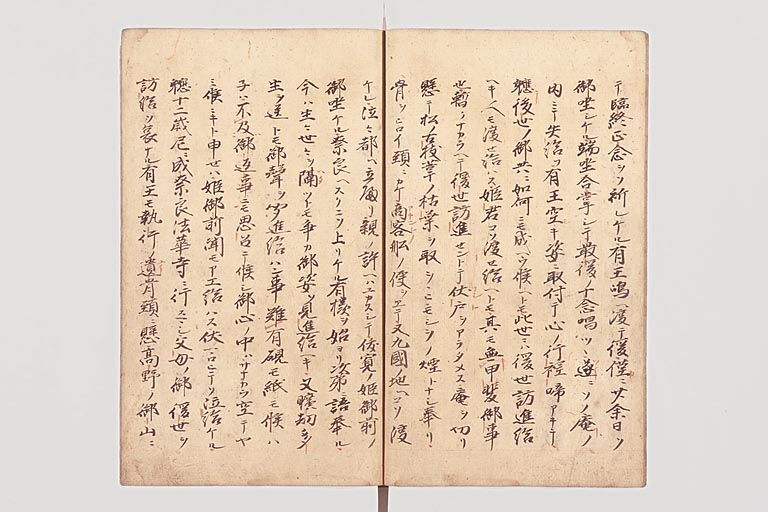 テ臨終正念ヲソ祈レケル有王嶋ヘ渡テ後僅ニ廿余日ノ
御坐シケル端坐合掌シテ最後ノ十念唱ツヽ遂ニソノ庵ノ
内ニテ失給ヌ有王空キ姿ニ取付テ心ノ行程啼アキテ
軈後世ノ御共ニ如何ニモ成ヘク候ヘトモ此世ニハ後世訪進給
ヘキ人モ渡セ給ハス姫君コソ渡セ給ヘトモ其モ無甲斐御事
也暫シナカラヘテ後世訪進セントテ伏戸ヲアラタメス庵ヲ切リ
懸テ松ノ枯枝葦ノ枯葉ヲ取ヲシコミモシヲノ煙トナシ奉リ
骨ヲヒロイ頸ニカケ商客船ノ便ヲエテ又九國ノ地ヘソ渡
ケル泣々都ヘ立歸リ親ノ許ヘハユカスシテ俊寛ノ姫御前ノ
御坐ケル奈良ヘスクニソ上リケル有樣ヲ始ヨリ次第語奉ル
今ハ生々世々ヲ隔ツトモ争カ御姿ヲ見進給ヘキ又曠劫多
生ヲ送トモ御聲ヲ聞進給ハン事難有硯モ紙モ候ハ
子ハ不及御返事ニモ思召テ候シ御心ノ中ハサナカラ空テヤ
ミ候ニキト申セハ姫御前聞モアエ給ハス伏マロヒテソ泣給ケル
軈十二歳尼ニ成奈良法華寺ニ行スマシ父母ノ御後世ヲ
訪給ソ哀ナル有王モ執行ノ遺骨頸ニ懸高野ノ御山ニ